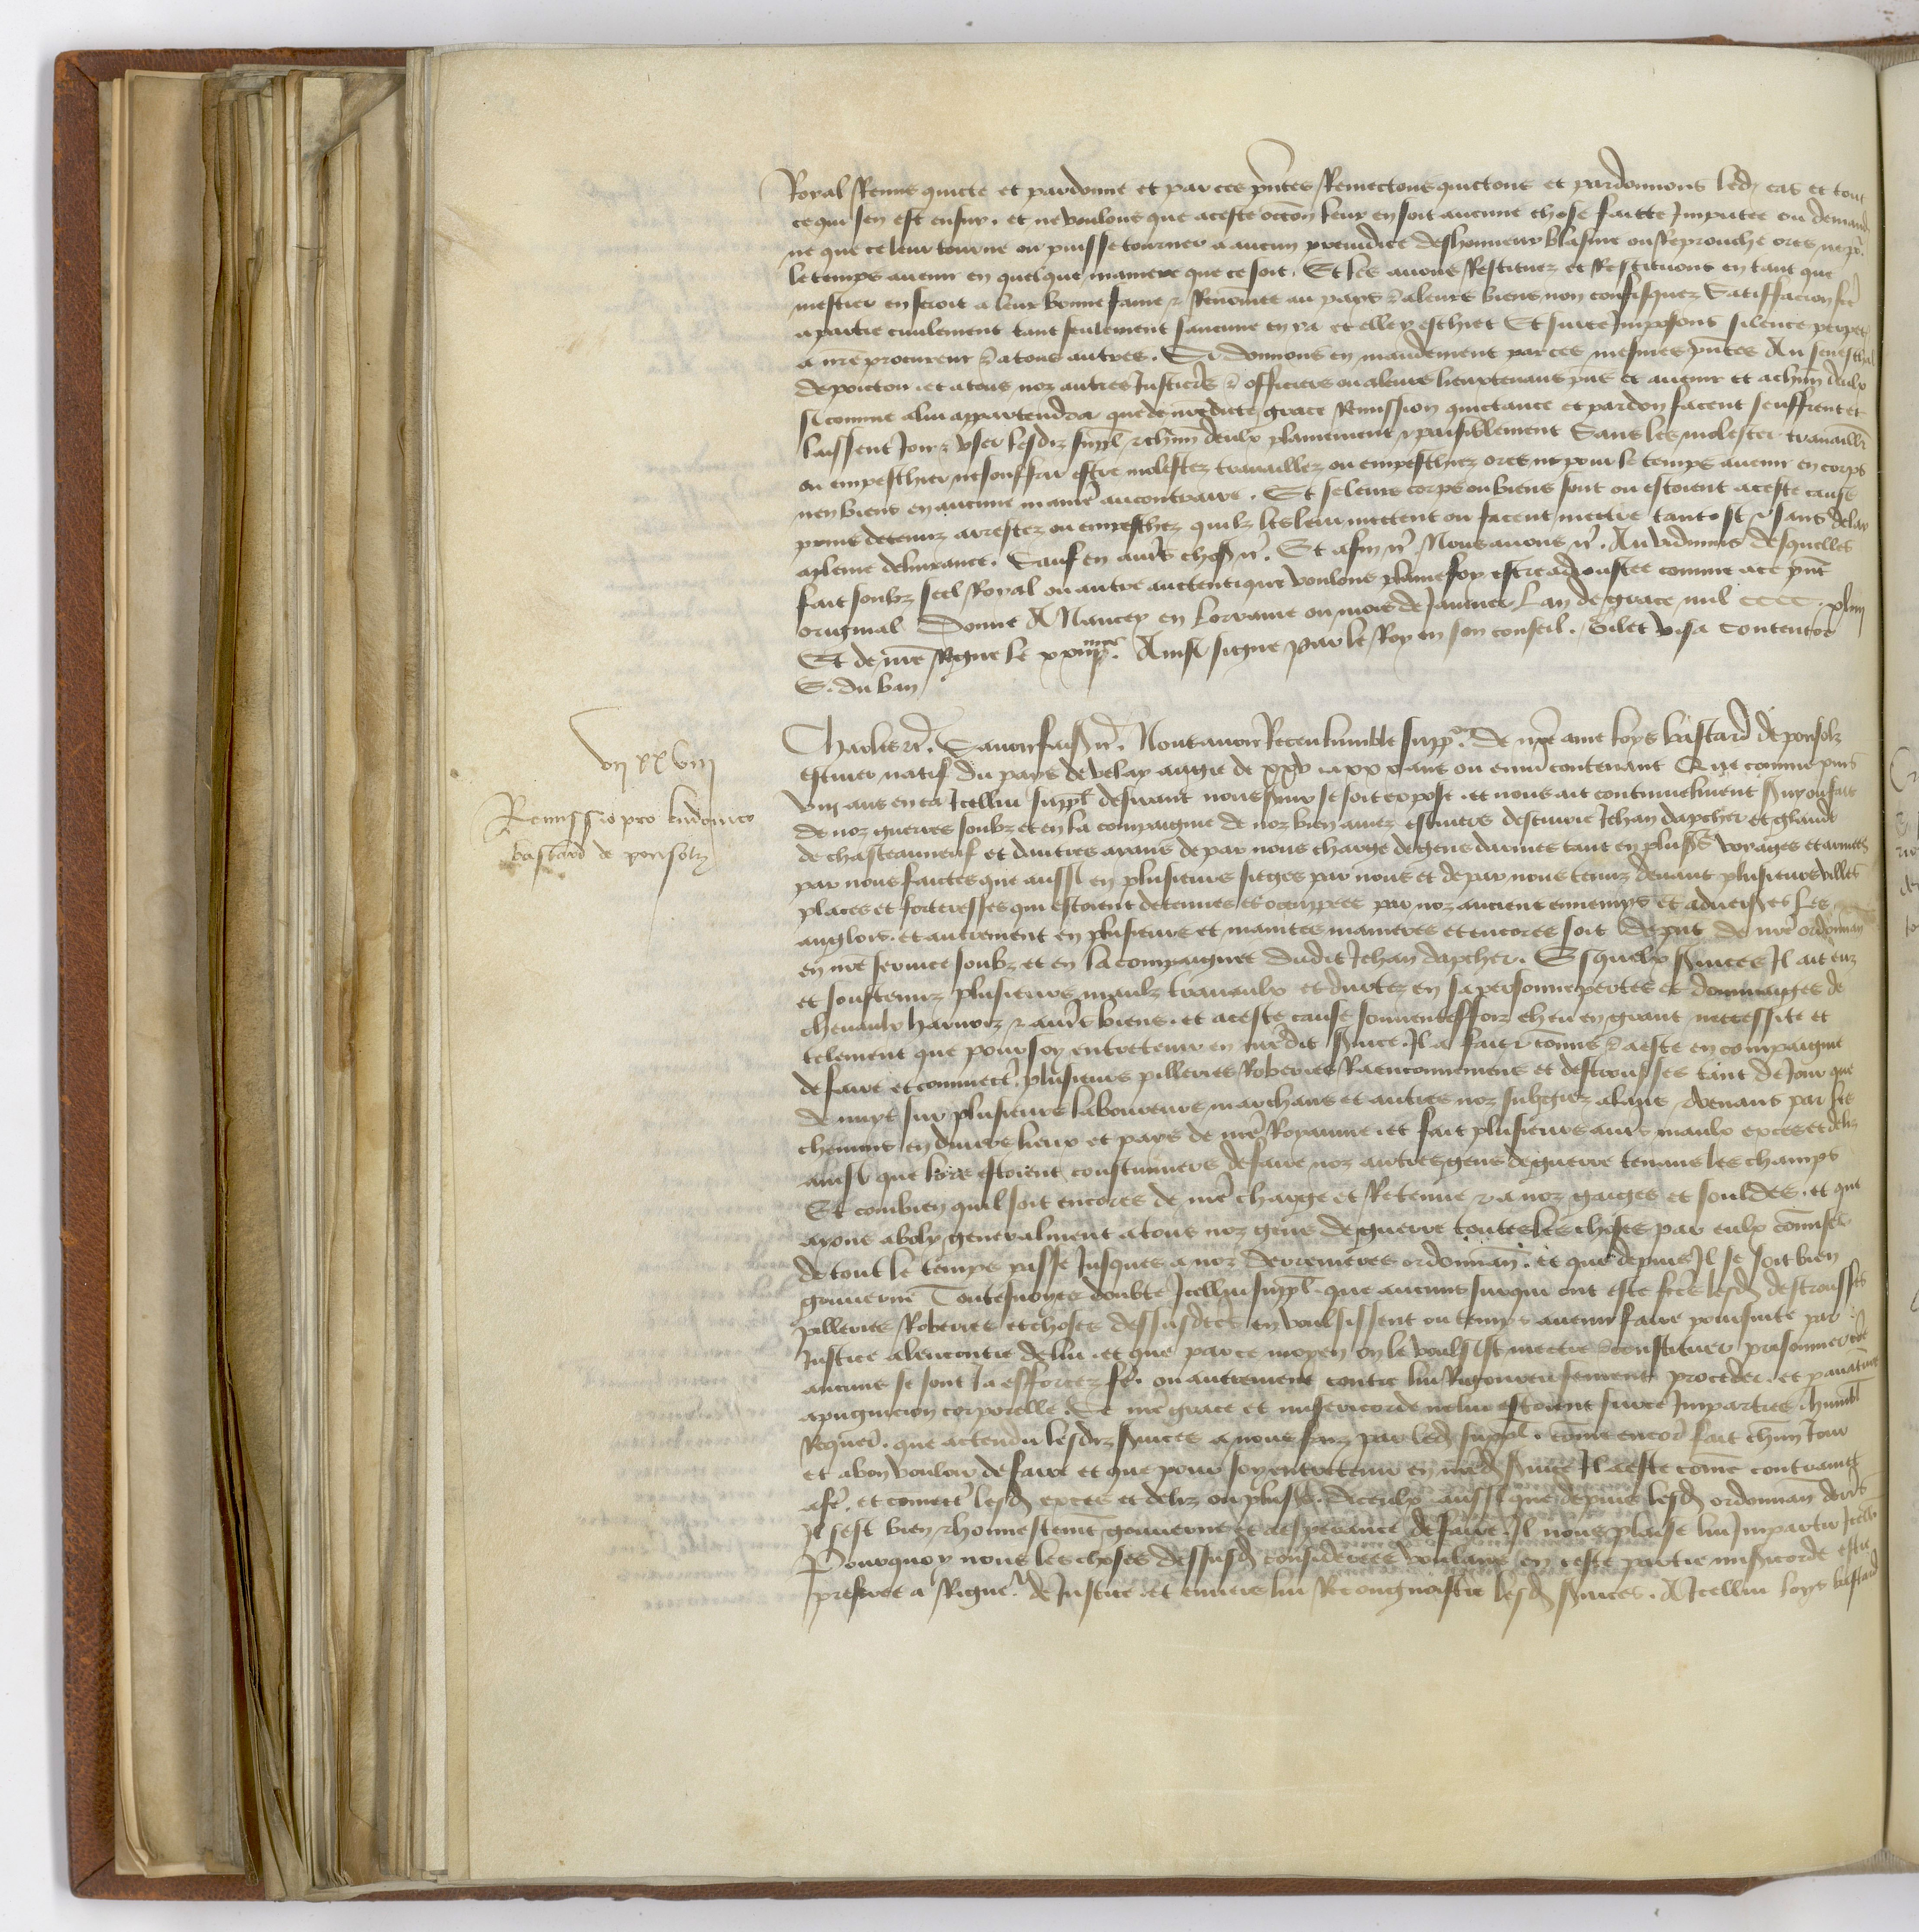 Royal Remis quicte et pardonne et par ces pntes Remectons quictons et pardonnons led. cas et tout
ce qui sen est ensuy. et ne voulons que a ceste occon leur en soit aucune chose faitte Imputee ou demand
ne que ce leur tourne ou puisse tourner a aucun preiudice deshonneur blasme ou Reprouche ores ne pr
le temps auenir en quelque maniere que ce soit. Et les auons Restituez et Restituons en tant que
mestier en seroit a leur bonne fame et Renomee au pays et a leurs biens non confisquez Satisfacion fte
a partie ciuilement tant seulement saucune en ya et elle y eschiet Et sur ce Imposons silence perpet
a nre procureur et a tous autres. Si donnons en mandement par ces mesmes pntes Au seneschal
de poictou et a tous noz autres Justiciers et officiers ou a leurs lieuxtenans pns et auenir et a chun deulx
si comme a lui appartendra que de nredicte grace Remission quictance et pardon facent seuffrent et
laissent Joir et vser lesdiz suppl. et chun deulx plainement et paisiblement Sans les molester trauaillr
ou empeschier ne souffrir estre molestez trauaillez ou empeschiez ores ne pour le temps auenir en corps
nen biens en aucune manre au contraire. Et se leurs corps ou biens sont ou estoient a ceste cause
prins detenuz arrestez ou empeschez quilz les leur mettent ou facent mettre tantost et sans delay
a pleine deliurance. Sauf en autrs choses etc. Et afin etc. Nous auons etc. Au vidimus desquelles
fait soubz seel Royal ou autre auctentique voulons plaine foy estre adioustee comme a ce pnt
original Donne A Nancey en Lorraine ou mois de Januier Lan de grace mil cccc. xliiii
Et de nre Regne le xxiiime. Ainsi signe Par le Roy en son conseil. Gilet visa Contentor
E. du ban
vii xx viii
Remissio pro ludouico
bastard de ponsolz
Charles etc. Sauoir faisons etc. Nous auoir Receu lumble supp.on de nre ame loys bastard de ponsolz
escuier natif du pays de velay aagie de xxv a xxx ans ou enuiron contenant Que comme puis
viii ans en ca Icellui suppl. desirant nous seruir se soit expose. et nous ait continuelment serui ou fait
de noz guerres soubz et en la compaignie de noz bien amez escuiers descuirie Jehan dapcher et glaude
de chasteauneuf et dautres ayans de par nous charge de gens darmes tant en plusrs voyages et armees
par nous faictes que aussi en plusieurs sieges par nous et de par nous tenuz deuant plusieurs villes
places et forteresses qui estoient detenues et occuppees par noz anciens ennemys et aduersres les
anglois. et autrement en plusieurs et maintes manieres et encores soit de pnt de nre ordonnan
en nre seruice soubz et en la compaignie dudit Jehan dapcher. Esquelx seruices Il ait euz
et soustenuz plusieurs maulx trauaulx et durtez en sa personne pertes et dommaiges de
cheuaulx harnoiz et autrs biens. et a ceste cause souuenteffoiz cheu en grant necessite et
telement que pour soy entretenir en nredit seruice. Il a fait et comis et a este en compaignie
de faire et commectr. plusieurs pilleries Roberies Raenconnemens et destrousses tant de Jour que
de nuyt sur plusieurs laboureurs marchans et autres noz subgiez alans et venans par les
chemins en diuers lieux et pays de nre Royaume. et fait plusieurs autrs maulx exces et deliz
ainsi que lors estoient coustumiers de faire noz autres gens de guerre tenans les champs
Et combien quil soit encores de nre charge et Retenue et a noz gaiges et souldes. et que
ayons aboly generalment a tous noz gens de guerre toutes les choses par eulx comises
de tout le temps passe Jusques a noz derrenieres ordonnan. et que depuis Il se soit bien
gouuerne Toutesuoyes doubte Icellui suppl. que aucuns sur qui ont este ftes lesd. destrousses
pilleries Roberies et choses dessusdtes en voulsissent ou temps auenir faire poursuite par
Justice a lencontre de lui. et que par ce moyen on le voulsist mectre et constituer prisonnier come
aucuns se sont Ja efforcez fe. ou autrement contre lui Rigoureusement proceder. et parauenture
a pugnicion corporelle. Se nre grace et misericorde ne lui estoient sur ce Imparties humbl.
Requerr. que actendu lesdiz seruices a nous faiz par led. suppl. come encor fait chun Jour
et a bon vouloir de faire et que pour soy entretenir en nred. seruice Il a este come contraint
a fe. et comectr lesd. exces et deliz ou plusrs diceulx aussi que depuis lesd. ordonnan. derrs
Il sest bien et honnestemt gouuerne et a esperance de faire. Il nous plaise lui Impartir Icelle
Pourquoy nous les choses dessusd. considerees voulans en ceste partie misericorde estre
preferee a Rigueur de Justice. et enuers lui Recongnoistre lesd. seruices. A Icellui loys bastard